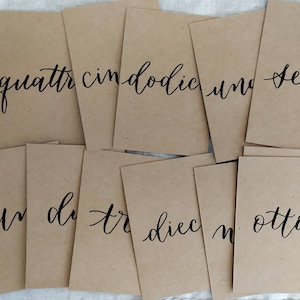 quattr
cin
dodic
und
se
un
du
tr
diec
n
otto